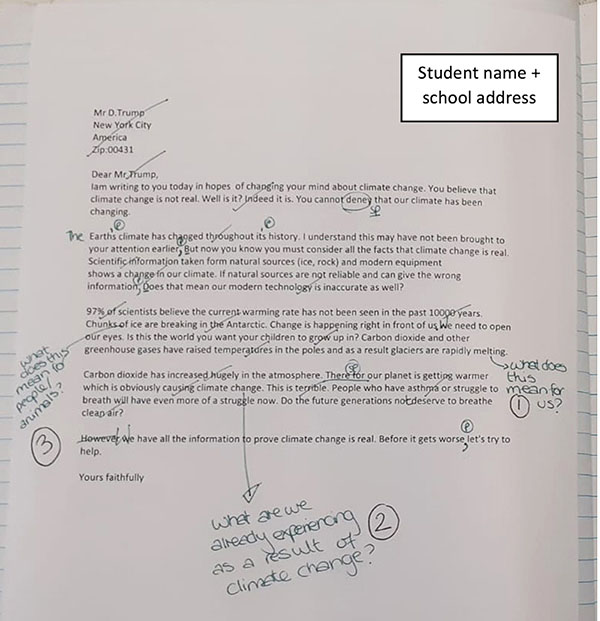 Student name +
school address
Mr D.Trump
New York City
America
Zip:00431
Dear Mr,Trump,
Iam writing to you today in hopes of changing your mind about climate change. You believe that
climate change is not real. Well is it? Indeed it is. You cannot deney that our climate has been
sp
changing.
P
P
The Earths climate has changed throughout its history. I understand this may have not been brought to
your attention earlier, But now you know you must consider all the facts that climate change is real.
Scientific information taken form natural sources (ice, rock) and modern equipment
shows a change in our climate. If natural sources are not reliable and can give the wrong
information, Does that mean our modern technology is inaccurate as well?
97% of scientists believe the current warming rate has not been seen in the past 10000 years.
Chunks of ice are breaking in the Antarctic. Change is happening right in front of us. We need to open
our eyes. Is this the world you want your children to grow up in? Carbon dioxide and other
greenhouse gases have raised temperatures in the poles and as a result glaciers are rapidly melting.
what does this mean for people/animals?
3
what does
this
mean for
us?
1
sp
Carbon dioxide has increased hugely in the atmosphere. There for our planet is getting warmer
which is obviously causing climate change. This is terrible. People who have asthma or struggle to
breath will have even more of a struggle now. Do the future generations not deserve to breathe
clean air?
P
However, We have all the information to prove climate change is real. Before it gets worse, let's try to
help.
Yours faithfully
what are we
already experiencing
as a result of
climate change?
2